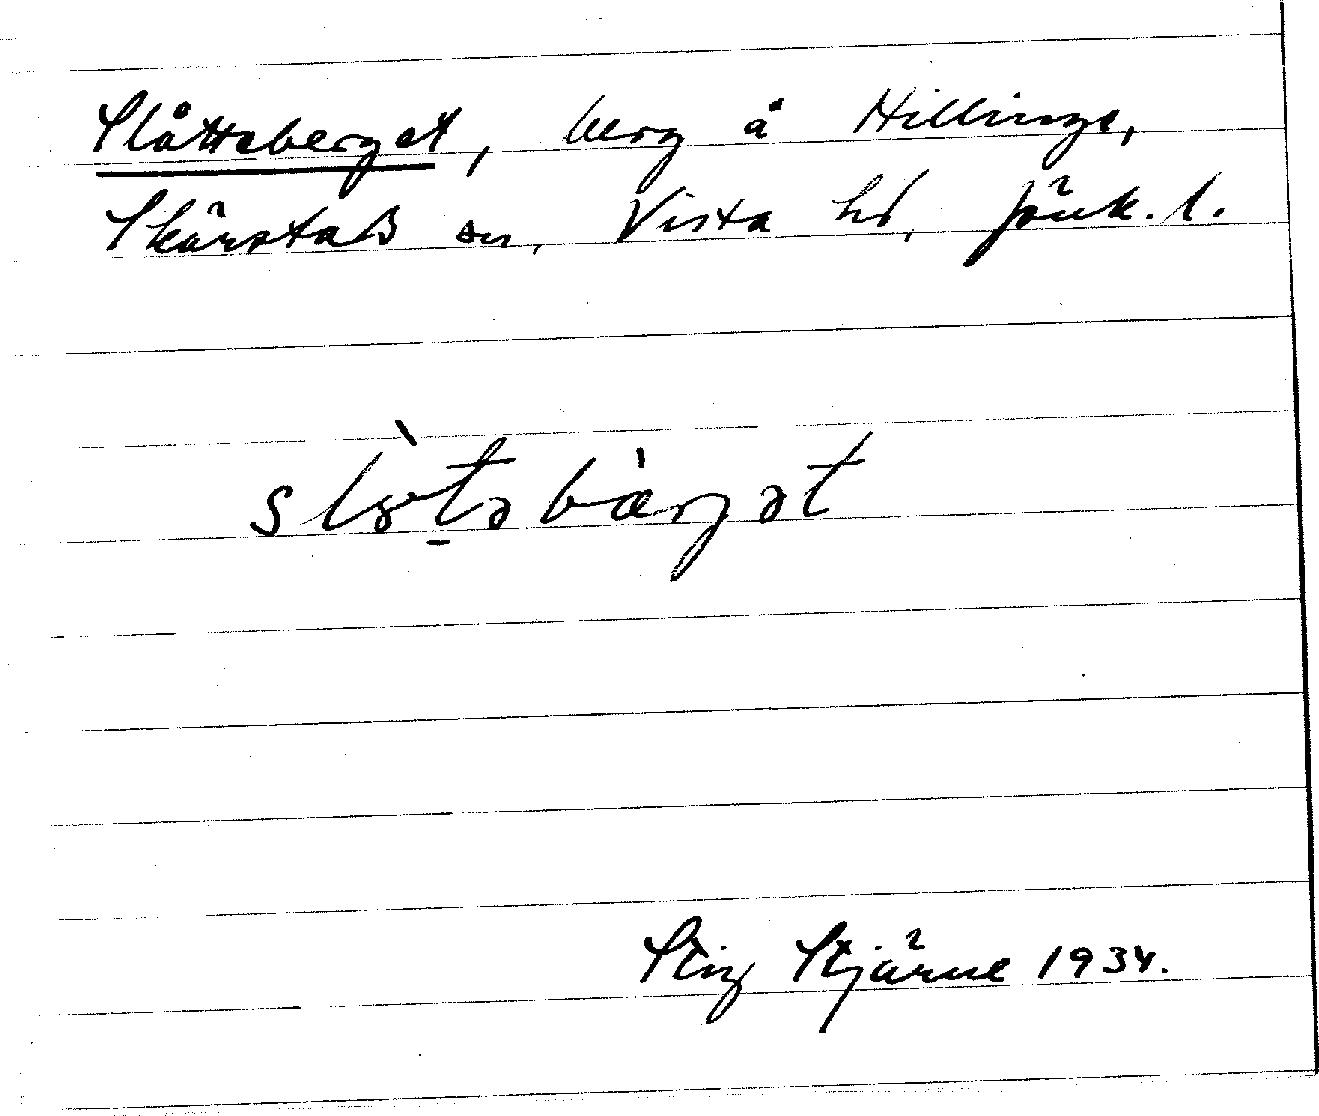 Slåtteberget, berg å Hillinge,
Skärstads sn, Vista hd, Jönk. l.
slòt̠əbàrgət
Stig Stjärne 1934.